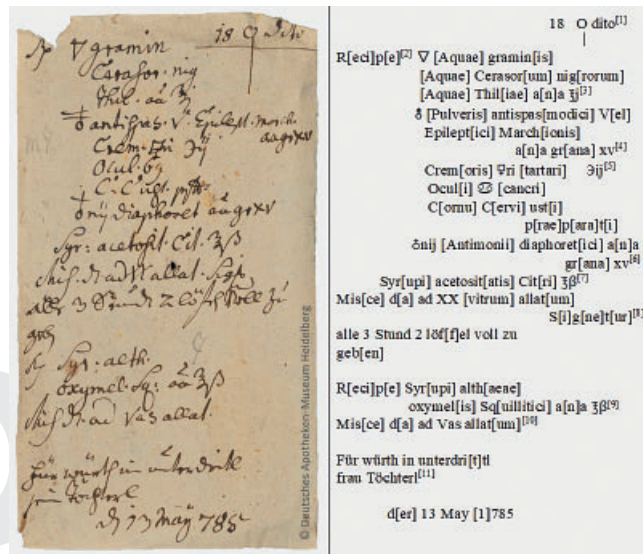 18 O dito
℞ ▽ gramin
Cerasor. nig
Thil. aa ʒ
antispas. V. Epilept. march.
aa gr xv
Crem. ʒij
Ocul. 69
C. C. ust. ppt
nij diaphoret aa gr xv
Syr: acetosit. Cit. ʒß
Misc. d. ad allat. Sig.
alle 3 Stund 2 löffl voll zu
geb
Syr. alth.
oxymel. Sq: aa ʒß
Misc. d. ad Vas allat.
für würth in unterdritl
frau töchterl
d 13 May 785
© Deutsches Apotheken-Museum Heidelberg
18 O dito[1]
R[eci]p[e][2] ▽ [Aquae] gramin[is]
[Aquae] Cerasor[um] nig[rorum]
[Aquae] Thil[iae] a[n]a ʒj[3]
♁ [Pulveris] antispas[modici] V[el]
Epilept[ici] March[ionis]
a[n]a gr[ana] xv[4]
Crem[oris] ♀ri [tartari] ℈ij[5]
Ocul[i] ♋ [cancri]
C[ornu] C[ervi] ust[i]
p[rae]p[ara]t[i]
♁nij [Antimonii] diaphoret[ici] a[n]a
gr[ana] xv[6]
Syr[upi] acetosit[atis] Cit[ri] ʒß[7]
Mis[ce] d[a] ad XX [vitrum] allat[um]
S[i]g[ne]t[ur][8]
alle 3 Stund 2 löf[f]el voll zu
geb[en]
R[eci]p[e] Syr[upi] alth[aeae]
oxymel[is] Sq[uillitici] a[n]a ʒß[9]
Mis[ce] d[a] ad Vas allat[um][10]
Für würth in unterdri[t]tl
frau Töchterl[11]
d[er] 13 May [1]785